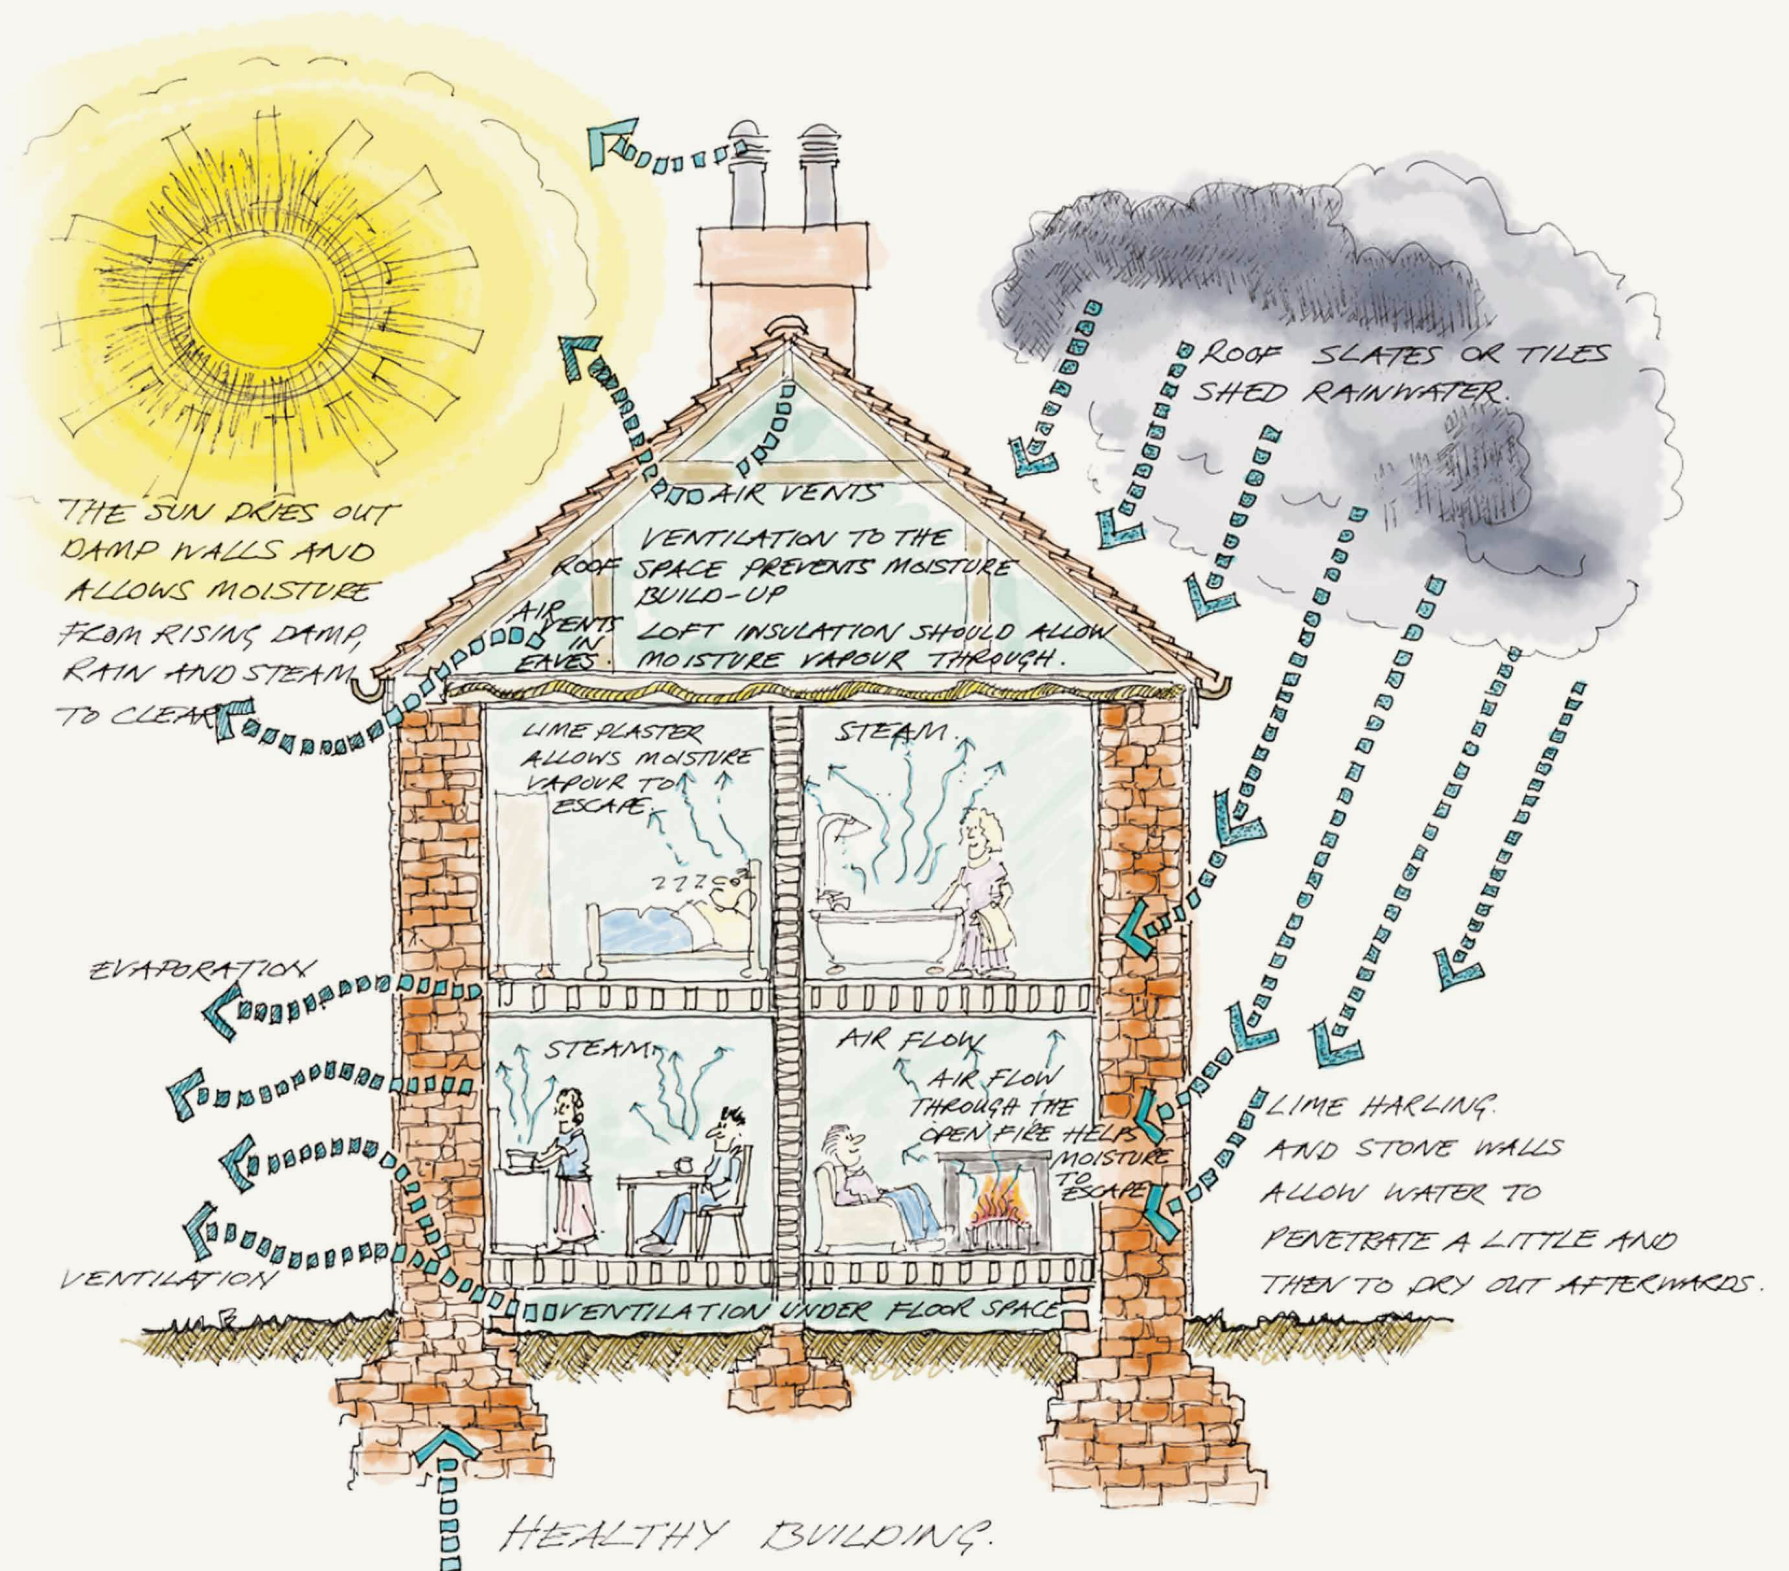 ROOF SLATES OR TILES
SHED RAINWATER.
THE SUN DRIES OUT
DAMP WALLS AND
ALLOWS MOISTURE
FROM RISING DAMP,
RAIN AND STEAM
TO CLEAR
AIR VENTS
VENTILATION TO THE
ROOF SPACE PREVENTS MOISTURE
BUILD-UP
AIR
VENTS
IN
EAVES.
LOFT INSULATION SHOULD ALLOW
MOISTURE VAPOUR THROUGH.
LIME PLASTER
ALLOWS MOISTURE
VAPOUR TO
ESCAPE.
STEAM.
ZZZ
EVAPORATION
STEAM
AIR FLOW
AIR FLOW
THROUGH THE
OPEN FIRE HELPS
MOISTURE
TO
ESCAPE
LIME HARLING.
AND STONE WALLS
ALLOW WATER TO
PENETRATE A LITTLE AND
THEN TO DRY OUT AFTERWARDS.
VENTILATION
VENTILATION UNDER FLOOR SPACE
HEALTHY BUILDING.